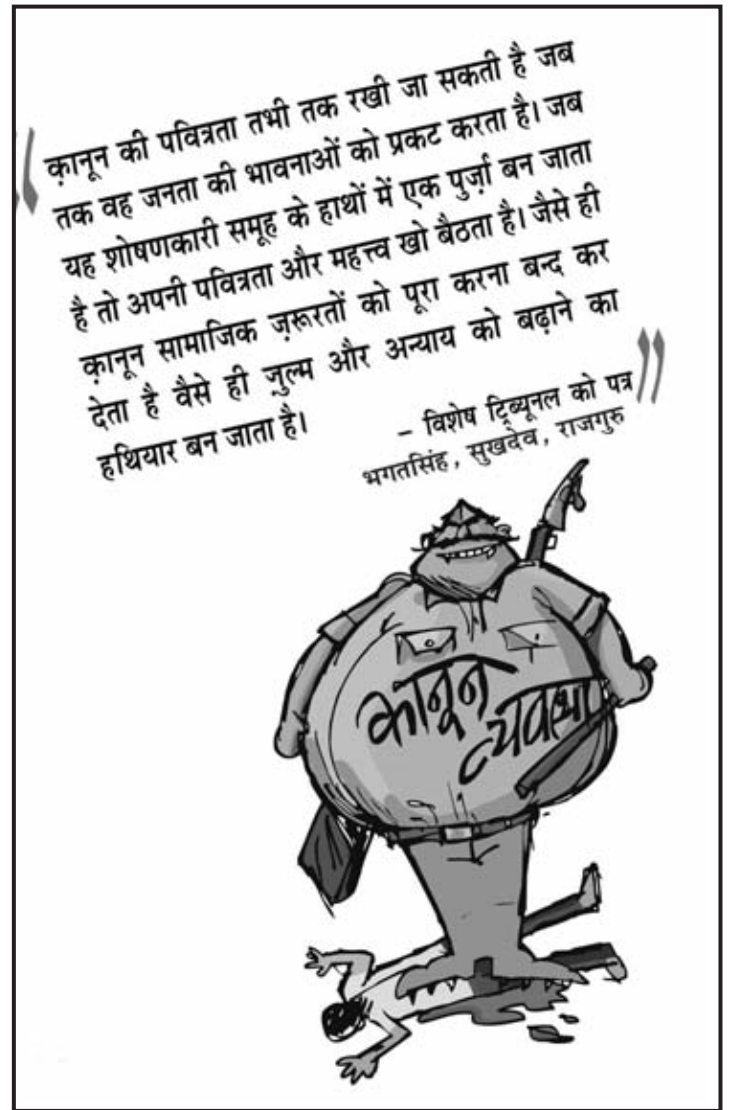 “क़ानून की पवित्रता तभी तक रखी जा सकती है जब
तक वह जनता की भावनाओं को प्रकट करता है। जब
यह शोषणकारी समूह के हाथों में एक पुर्ज़ा बन जाता
है तो अपनी पवित्रता और महत्त्व खो बैठता है। जैसे ही
क़ानून सामाजिक ज़रूरतों को पूरा करना बन्द कर
देता है वैसे ही जुल्म और अन्याय को बढ़ाने का
हथियार बन जाता है।”
– विशेष ट्रिब्यूनल को पत्र
भगतसिंह, सुखदेव, राजगुरु
कानून
व्यवस्था